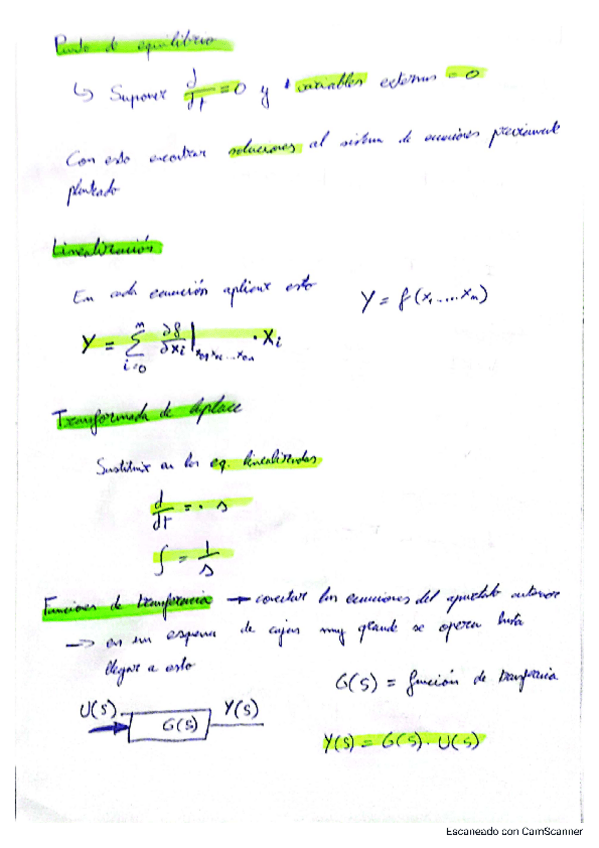 Punto de equilibrio
↳ Suponer d/dt = 0 y variables externas = 0
Con esto encontrar soluciones al sistema de ecuaciones previamente
planteado
Linealización
En cada ecuación aplicar esto
Y = f(x₁....xₙ)
Y = Σ i=0 n ∂f/∂xi | · Xi
Transformada de Laplace
Sustituir en las eq. linealizadas
d/dt = · s
∫ = 1/s
Funciones de transferencia → conectar las ecuaciones del apartado anterior
→ en un esquema de cajas muy grande se opera hasta
llegar a esto
G(s) = función de transferencia
U(s) G(s) Y(s)
Y(s) = G(s) · U(s)
Escaneado con CamScanner